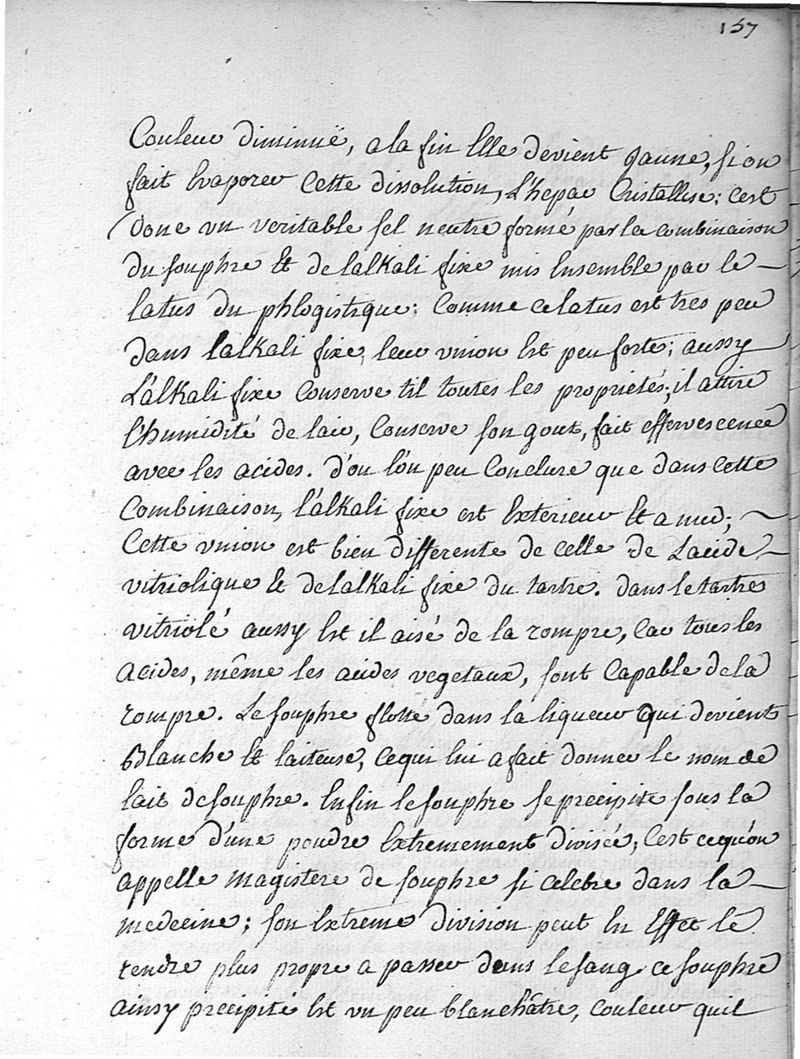 157
Couleur diminuë, a la fin Elle devient jaune, si on
fait Evaporer Cette dissolution, L'hepar Cristallise; cest
donc un veritable sel neutre formé par la combinaison
du souphre Et de lalkali fixe mis Ensemble par le
latus du phlogistique; Comme ce latus est tres peu
dans lalkali fixe, leur union Est peu forte; aussy
L'alkali fixe Conserve til toutes les propriétés; il attire
l'humidité de lair, Conserve son gout, fait effervescence
avec les acides. d'ou l'on peu Conclure que dans cette
Combinaison, l'alkali fixe est Exterieur Et a nud;
Cette union est bien differente de celle de Lacide
vitriolique Et de lalkali fixe du tartre. dans le tartre
vitriolé aussy Est il aisé de la rompre, Car tous les
acides, même les acides vegetaux, sont Capable de la
rompre. Le souphre flotte dans la liqueur qui devient
Blanche Et laiteuse, ce qui lui a fait donner le nom de
lait de souphre. Enfin le souphre se precipite sous la
forme d'une poudre Extremement divisée, C'est ce qu'on
appelle magistere de souphre si celebre dans la
medecine; son Extreme division peut En Effet le
rendre plus propre a passer dans le sang. ce souphre
ainsy precipité Est un peu blanchâtre, Couleur quil